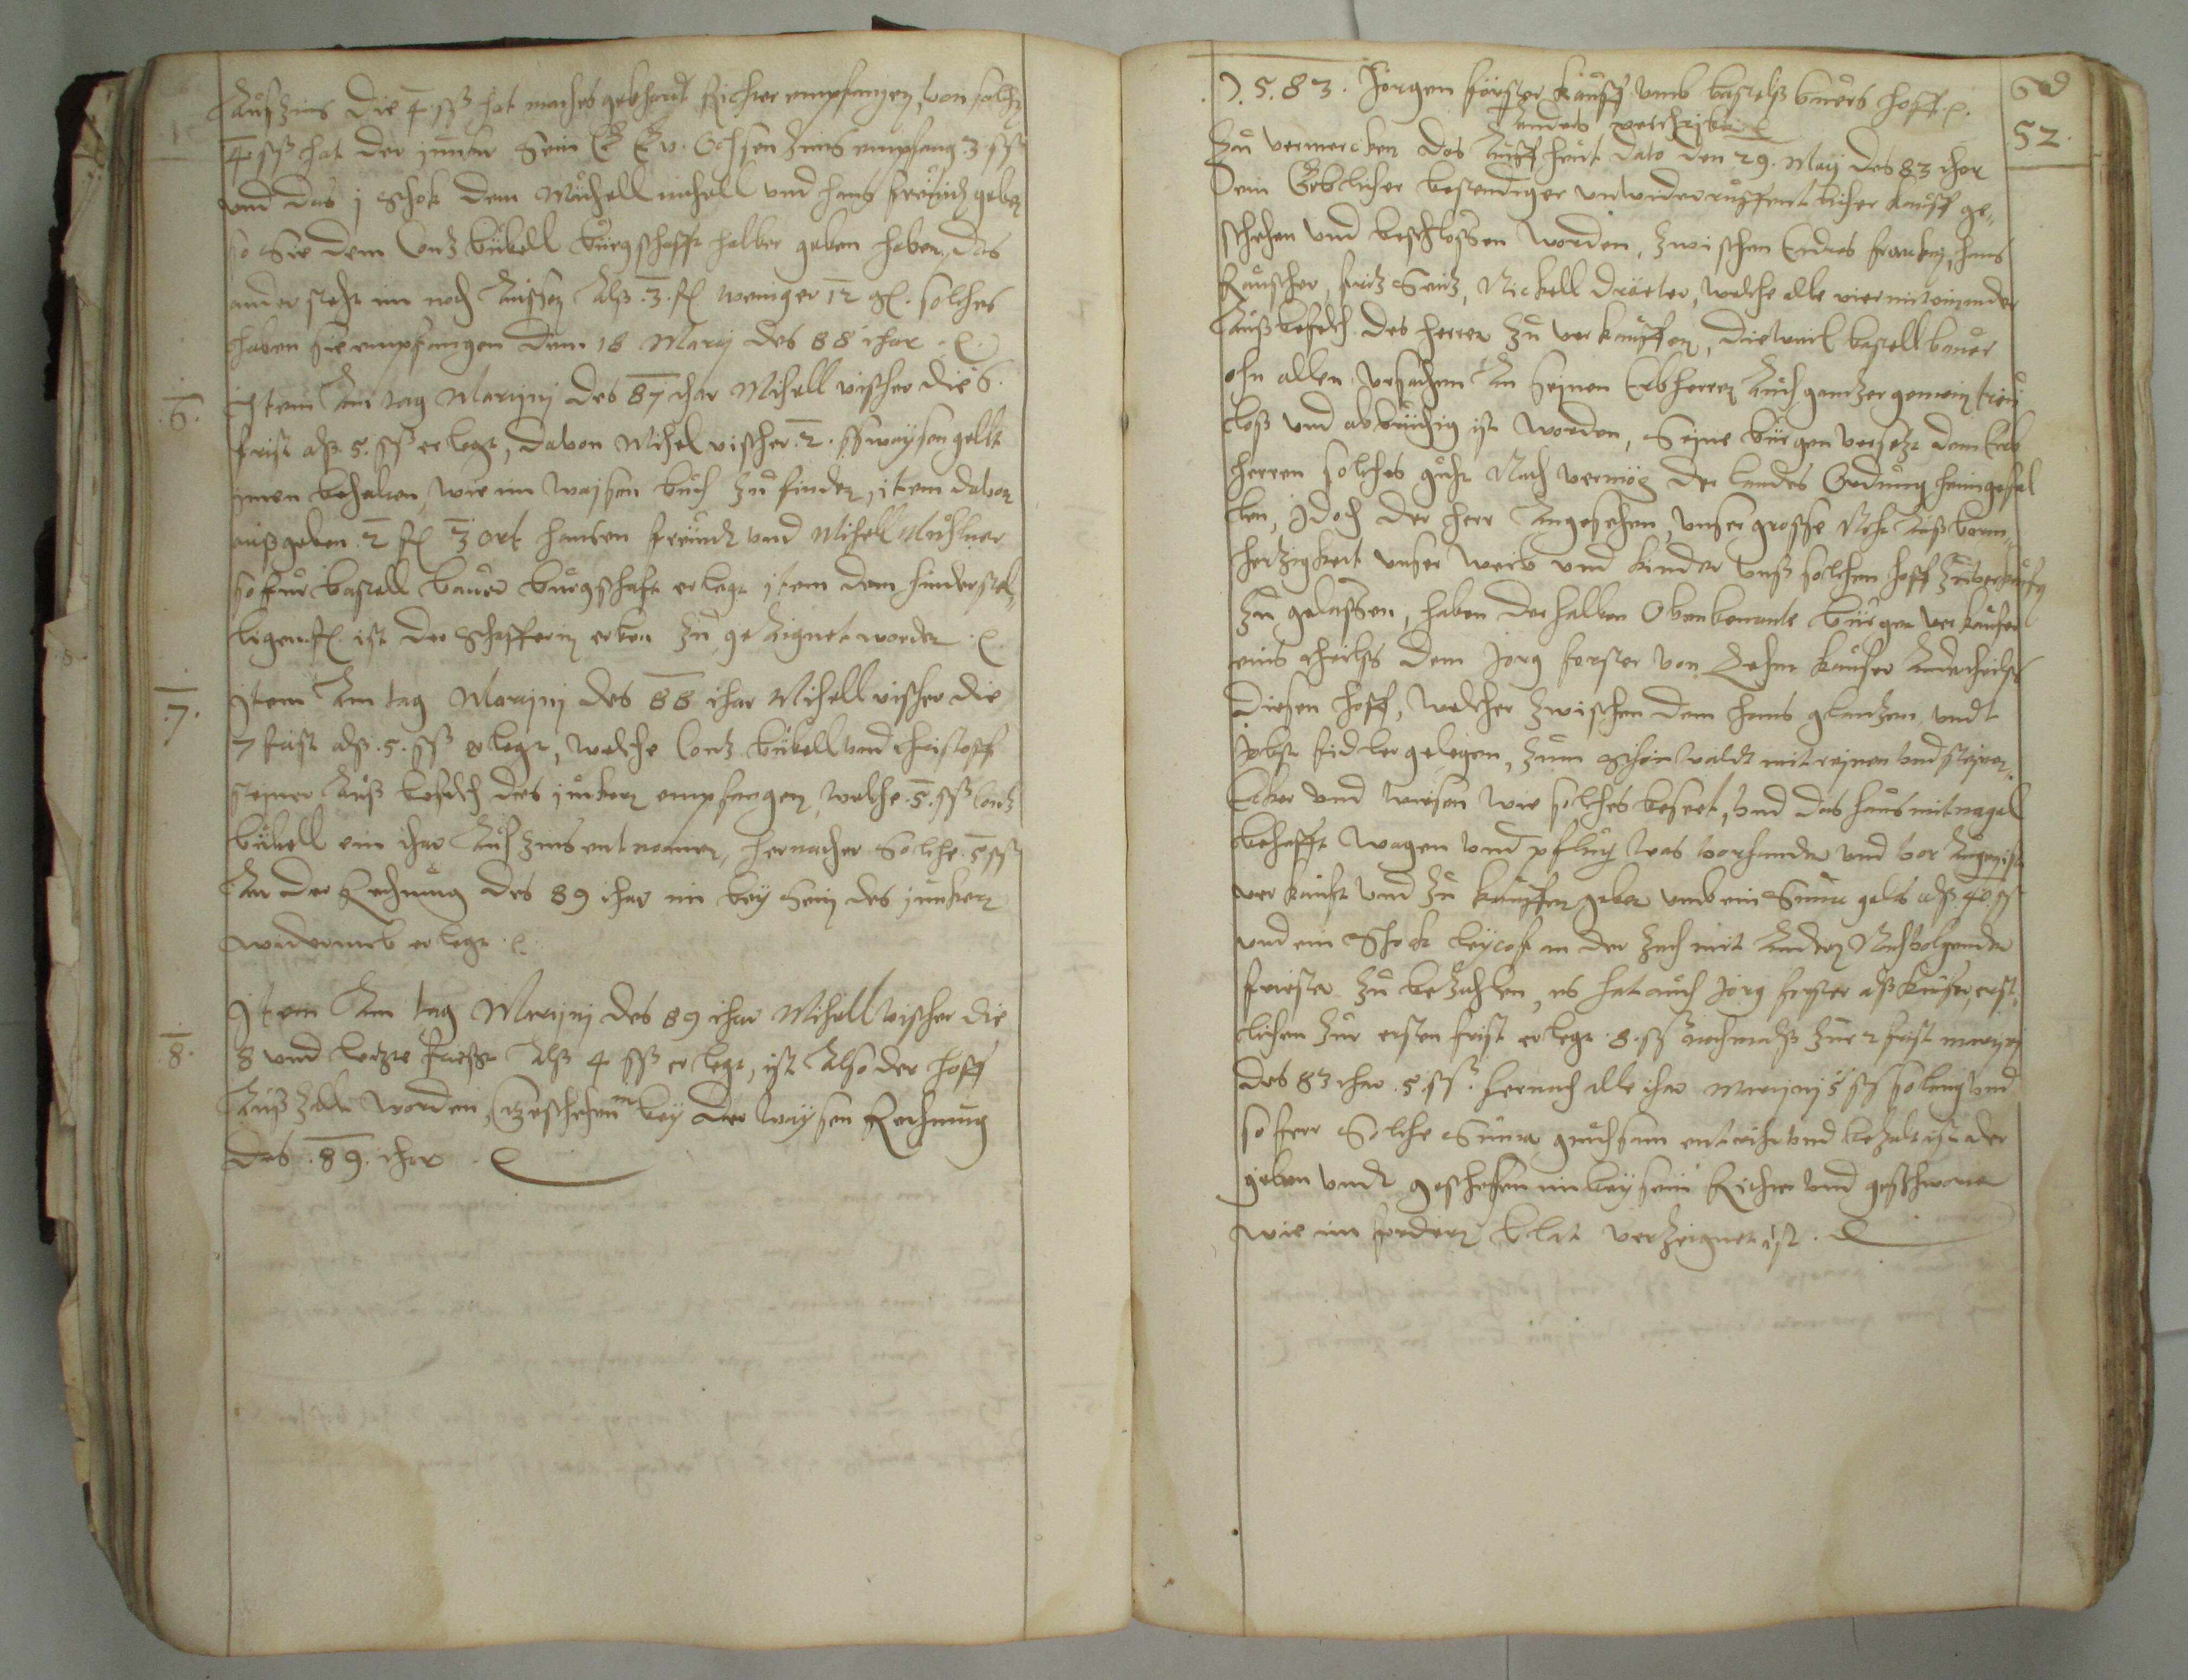 Auf zins die 4 ßß hat mathes gebhardt Richter empfangen, von solche
4 ßß hat der juncker Sein Ochsen zins empfang 3 ßß
und das j schok dem Michell und hans freündt geben
so Sie dem Contz bükell bürgschafft halber geben haben, das
ander steht im noch Aussen Alß 3 fl weniger 12 gl. solches
haben sie empfangen dem 18 Marcj des 88 ihar
6.
Item Am tag Martinj des 87 ihar Mihell vischer die 6.
frist alß 5 ßß erlegt, davon Mihel vischer 2 ßß waysen gellt
innen behalten, wie im waysen buch zu finden, item davon
auß geben 2 fl 3 ort hansen freündt und Mihell
so für bastell bauer bürgschaft erlegt item dem hinderstel
ligen fl. ist der Schefferin erben zu geAignet worden
7.
Item Am tag Martinj des 88 ihar Mihell vischer die
7 frist alß 5 ßß erlegt, welche Contz bükell und christoff
steiner Auß befelch des junkern empfangen, welche 5 ßß Contz
bükell ein ihar Auf zins entnomen, hernacher Solche 5 ßß
An der Rechnung des 89 ihar im bey Sein des junkern
widerumb erlegt
8.
Item Am tag Martinj des 89 ihar Mihell vischer die
8 und letzte friest Alß 4 ßß erlegt, ist Also der hoff
Auß zalt worden, Geschehenn bey der waysen Rechnung
des 89. ihar
1.5.83. Jörgen förster kauff umb bastelß buers hoff
52.
Zu vermercken das Auff heut dato den 29. Maij des 83 ihar
Ein Erblicher bestendiger unwiderrufflicher kauff ge-
schehen und beschlossen worden, zwischen Endres francken, hans
Rauscher, fritz Seitz, Nickell dräxler, welche alle vier miteinander
Auß befelch des herren zu verkauffen, dieweil bastell bauer
ohn allen ursachen An Seinen Erbherren Auch gantzer gemein treu
loß und abbrüchig ist worden, Seine bürgen versetzt dem Erb
herren solches guht Nach vermög der landes Ordnung heimgefal
len, Idoch der herr Angesehen, unser grosse Noht Auß barm
hertzigkeit unser weib und kinder unß solchen hoff zuverkaufen
zu gelassen, haben derhalben Obenbenante bürgen verkaufer
eins theilß dem Jörg forster von kaufer Andertheilß
diesen hoff, welcher zwischen dem hans glantzen undt
fidler gelegen, zum Schönwaldt mit reinen und steinen
Ecker und wiesen wie solches beseet, und das haus mit nagel
behafft wagen und pflug was vorhanden und vor Augen ist
verkauft und zu kauffen geben umb ein Suma gelts alß 40 ßß
und ein Schock leycof an der zech mit Andern Nachvolgenden
fristen zu bezahlen, es hat auch Jörg forster alß kaufer, erst
lichen zur ersten frist erlegt 8 ßß nochmalß zur 2 frist martinj
des 83 ihar 5 ßß hernach alle ihar Martinj 5 ßß so lang und
so fern Solche Suma gnuchsam entricht und bezalt ist der
geben undt geschehen im beysein Richter und geschworne
wie im fordern blat verzeignet ist.